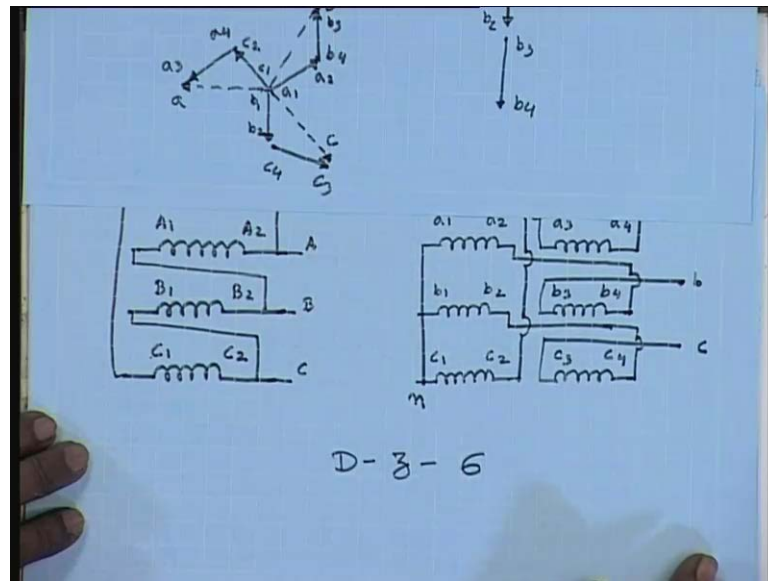 b3
a4 c2
a3 c1 b4
a b1 a1 a2
b2
c4 c
c3
b2
b3
b4
A1 A2 A
B1 B2 B
C1 C2 C
a1 a2 a3 a4
b1 b2 b3 b4 b
c1 c2 c3 c4 c
n
D - z - 6